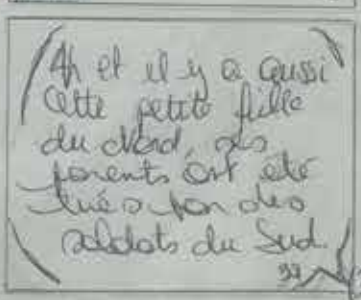 Ah et il y a aussi
cette petite fille
du Nord, ses
parents ont été
tués par des
soldats du Sud.